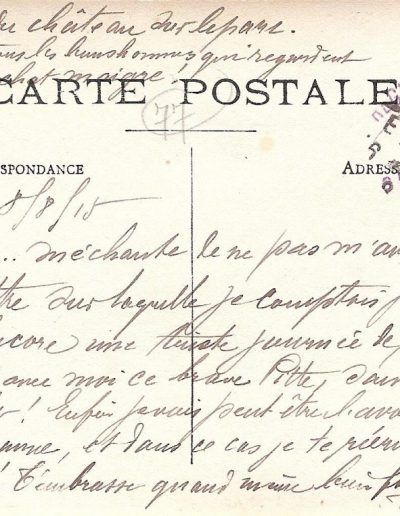 du château sur le parc.
tous les bonshommes qui regardent
chat maigre!
CARTE POSTALE
77
SPONDANCE
ADRESS
8/8/15
... méchante de ne pas m'av
ttre sur laquelle je comptais p
ncore une triste journée de
avec moi ce brave
! Enfin j'aurai peut être l'avo
, et dans ce cas je te
! T'embrasse quand même bien fo